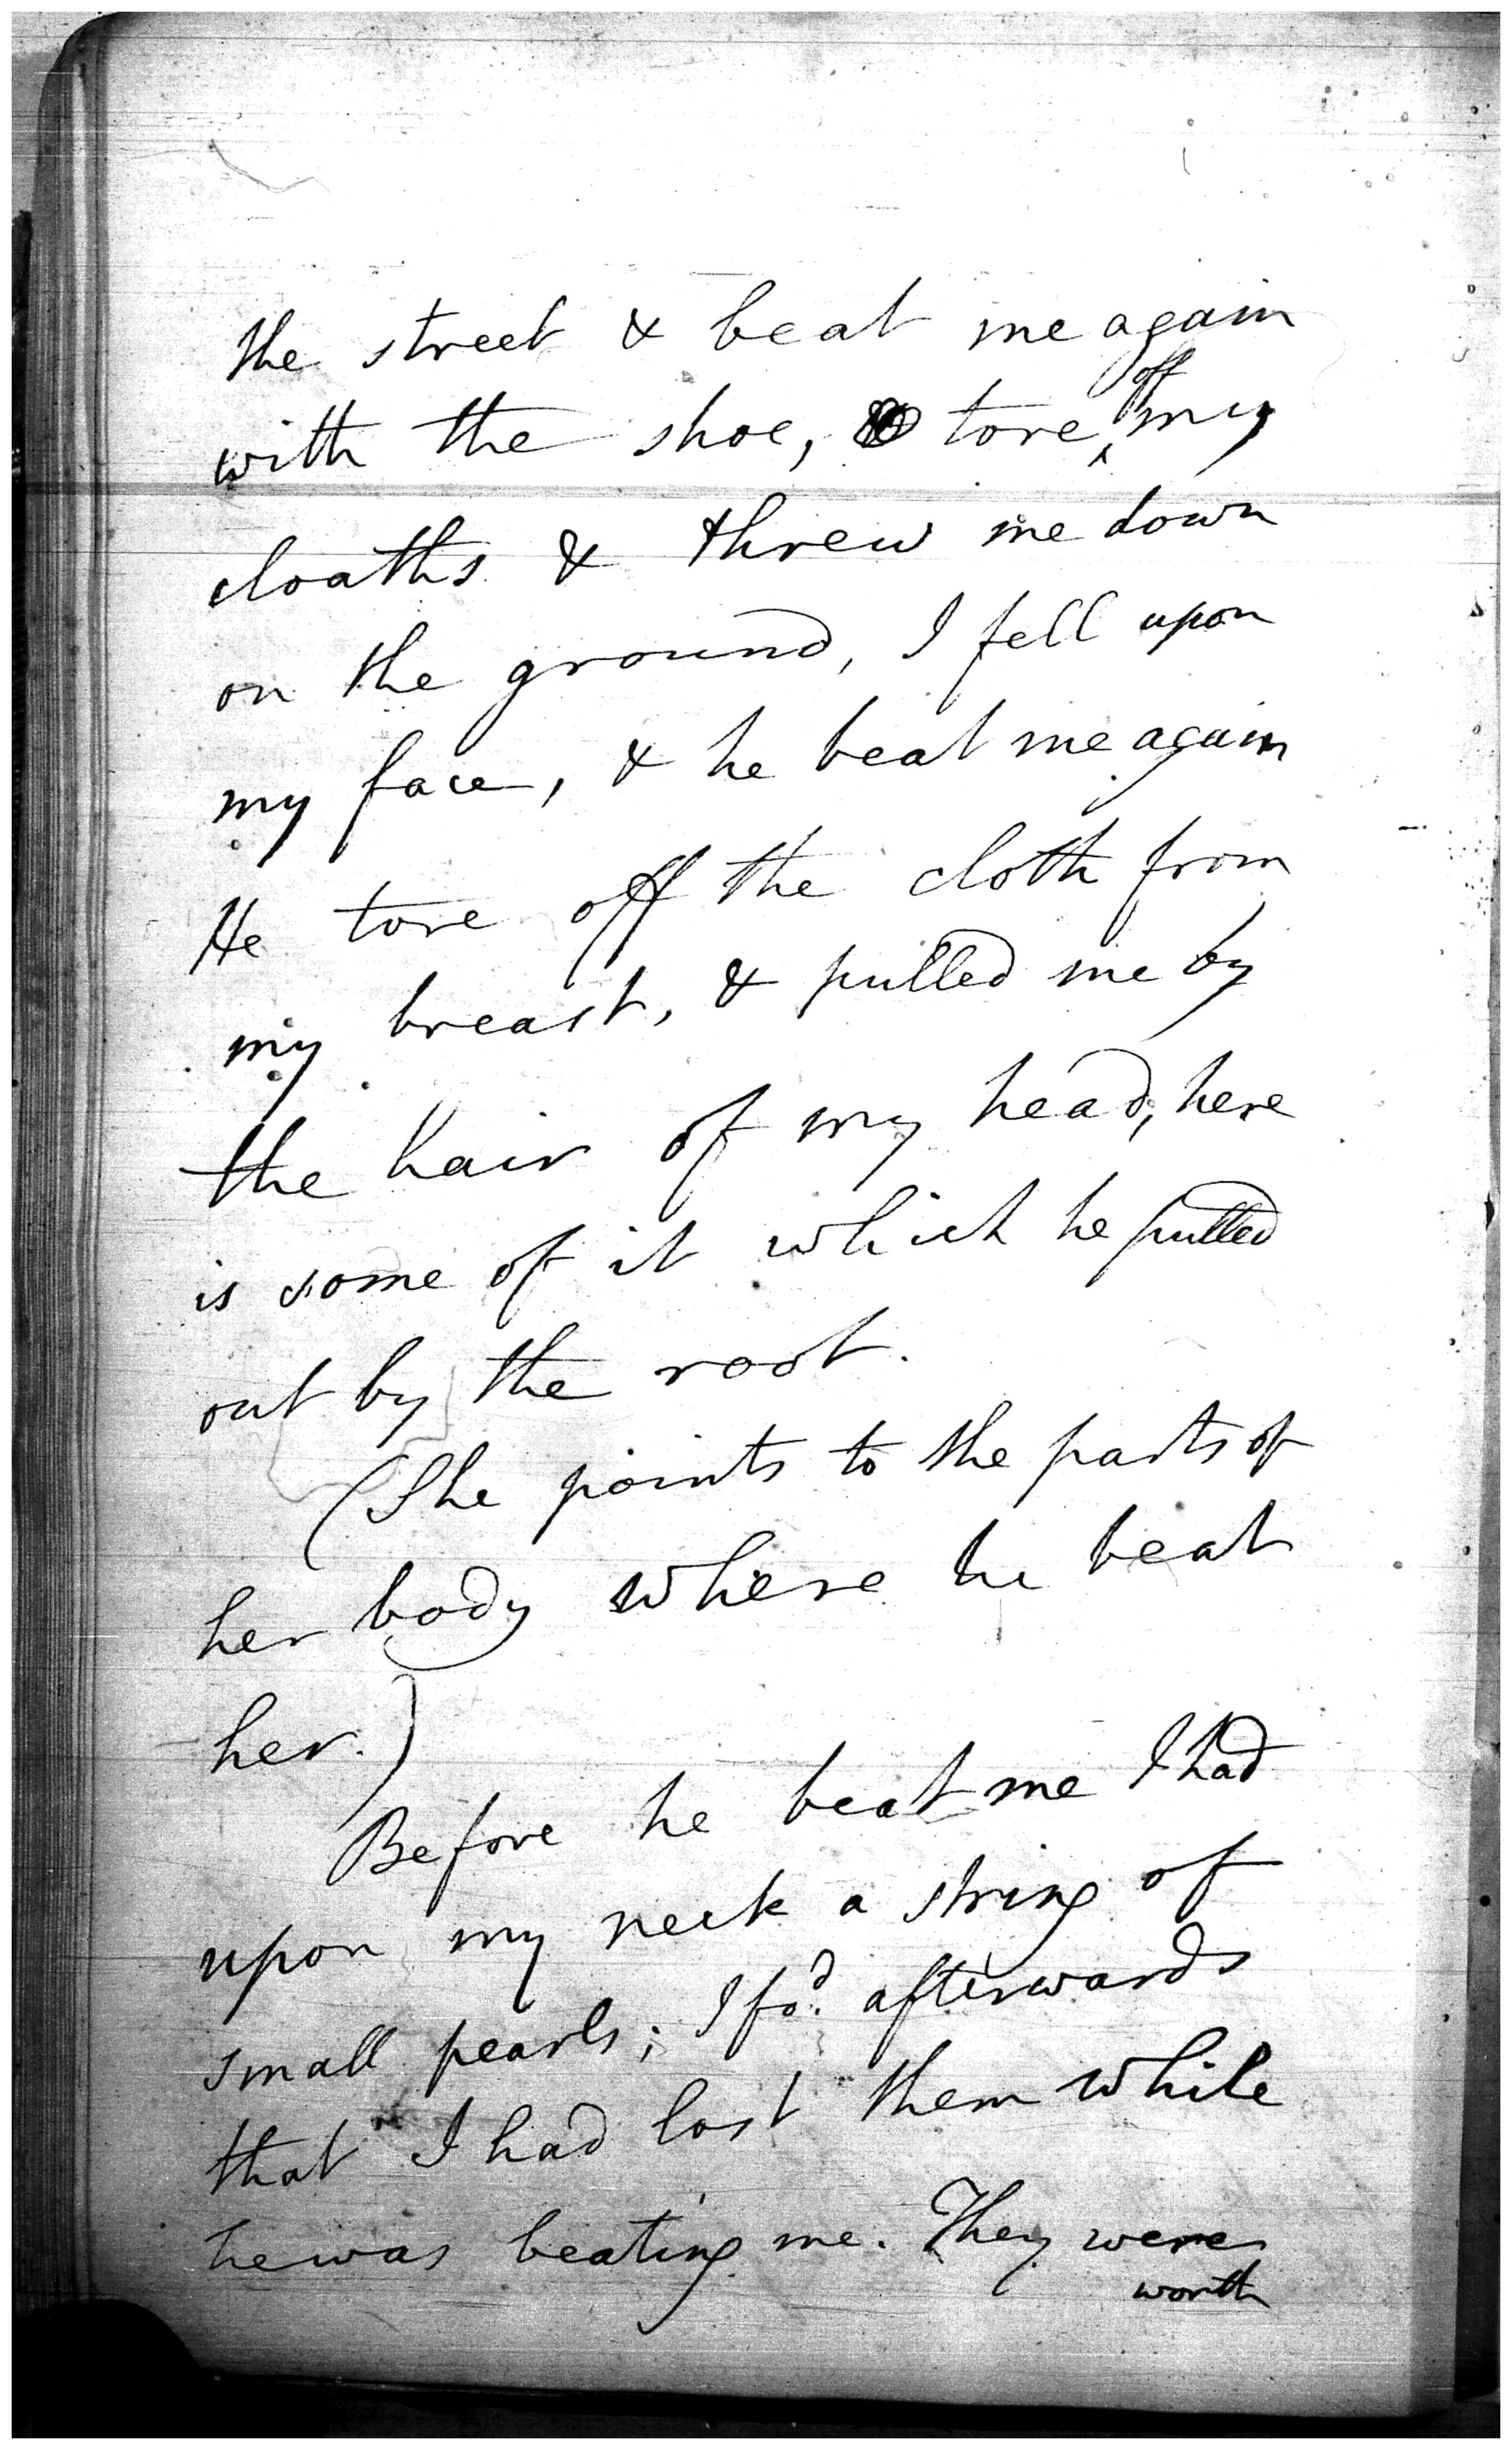 the street & beat me again
with the shoe, tore off my
cloaths & threw me down
on the ground, I fell upon
my face, & he beat me again
He tore off the cloth from
my breast, & pulled me by
the hair of my head, here
is some of it which he pulled
out by the root.
(She points to the parts of
her body where he beat
her.)
Before he beat me I had
upon my neck a string of
small pearls; I fo.d afterwards
that I had lost them while
he was beating me. They were
worth